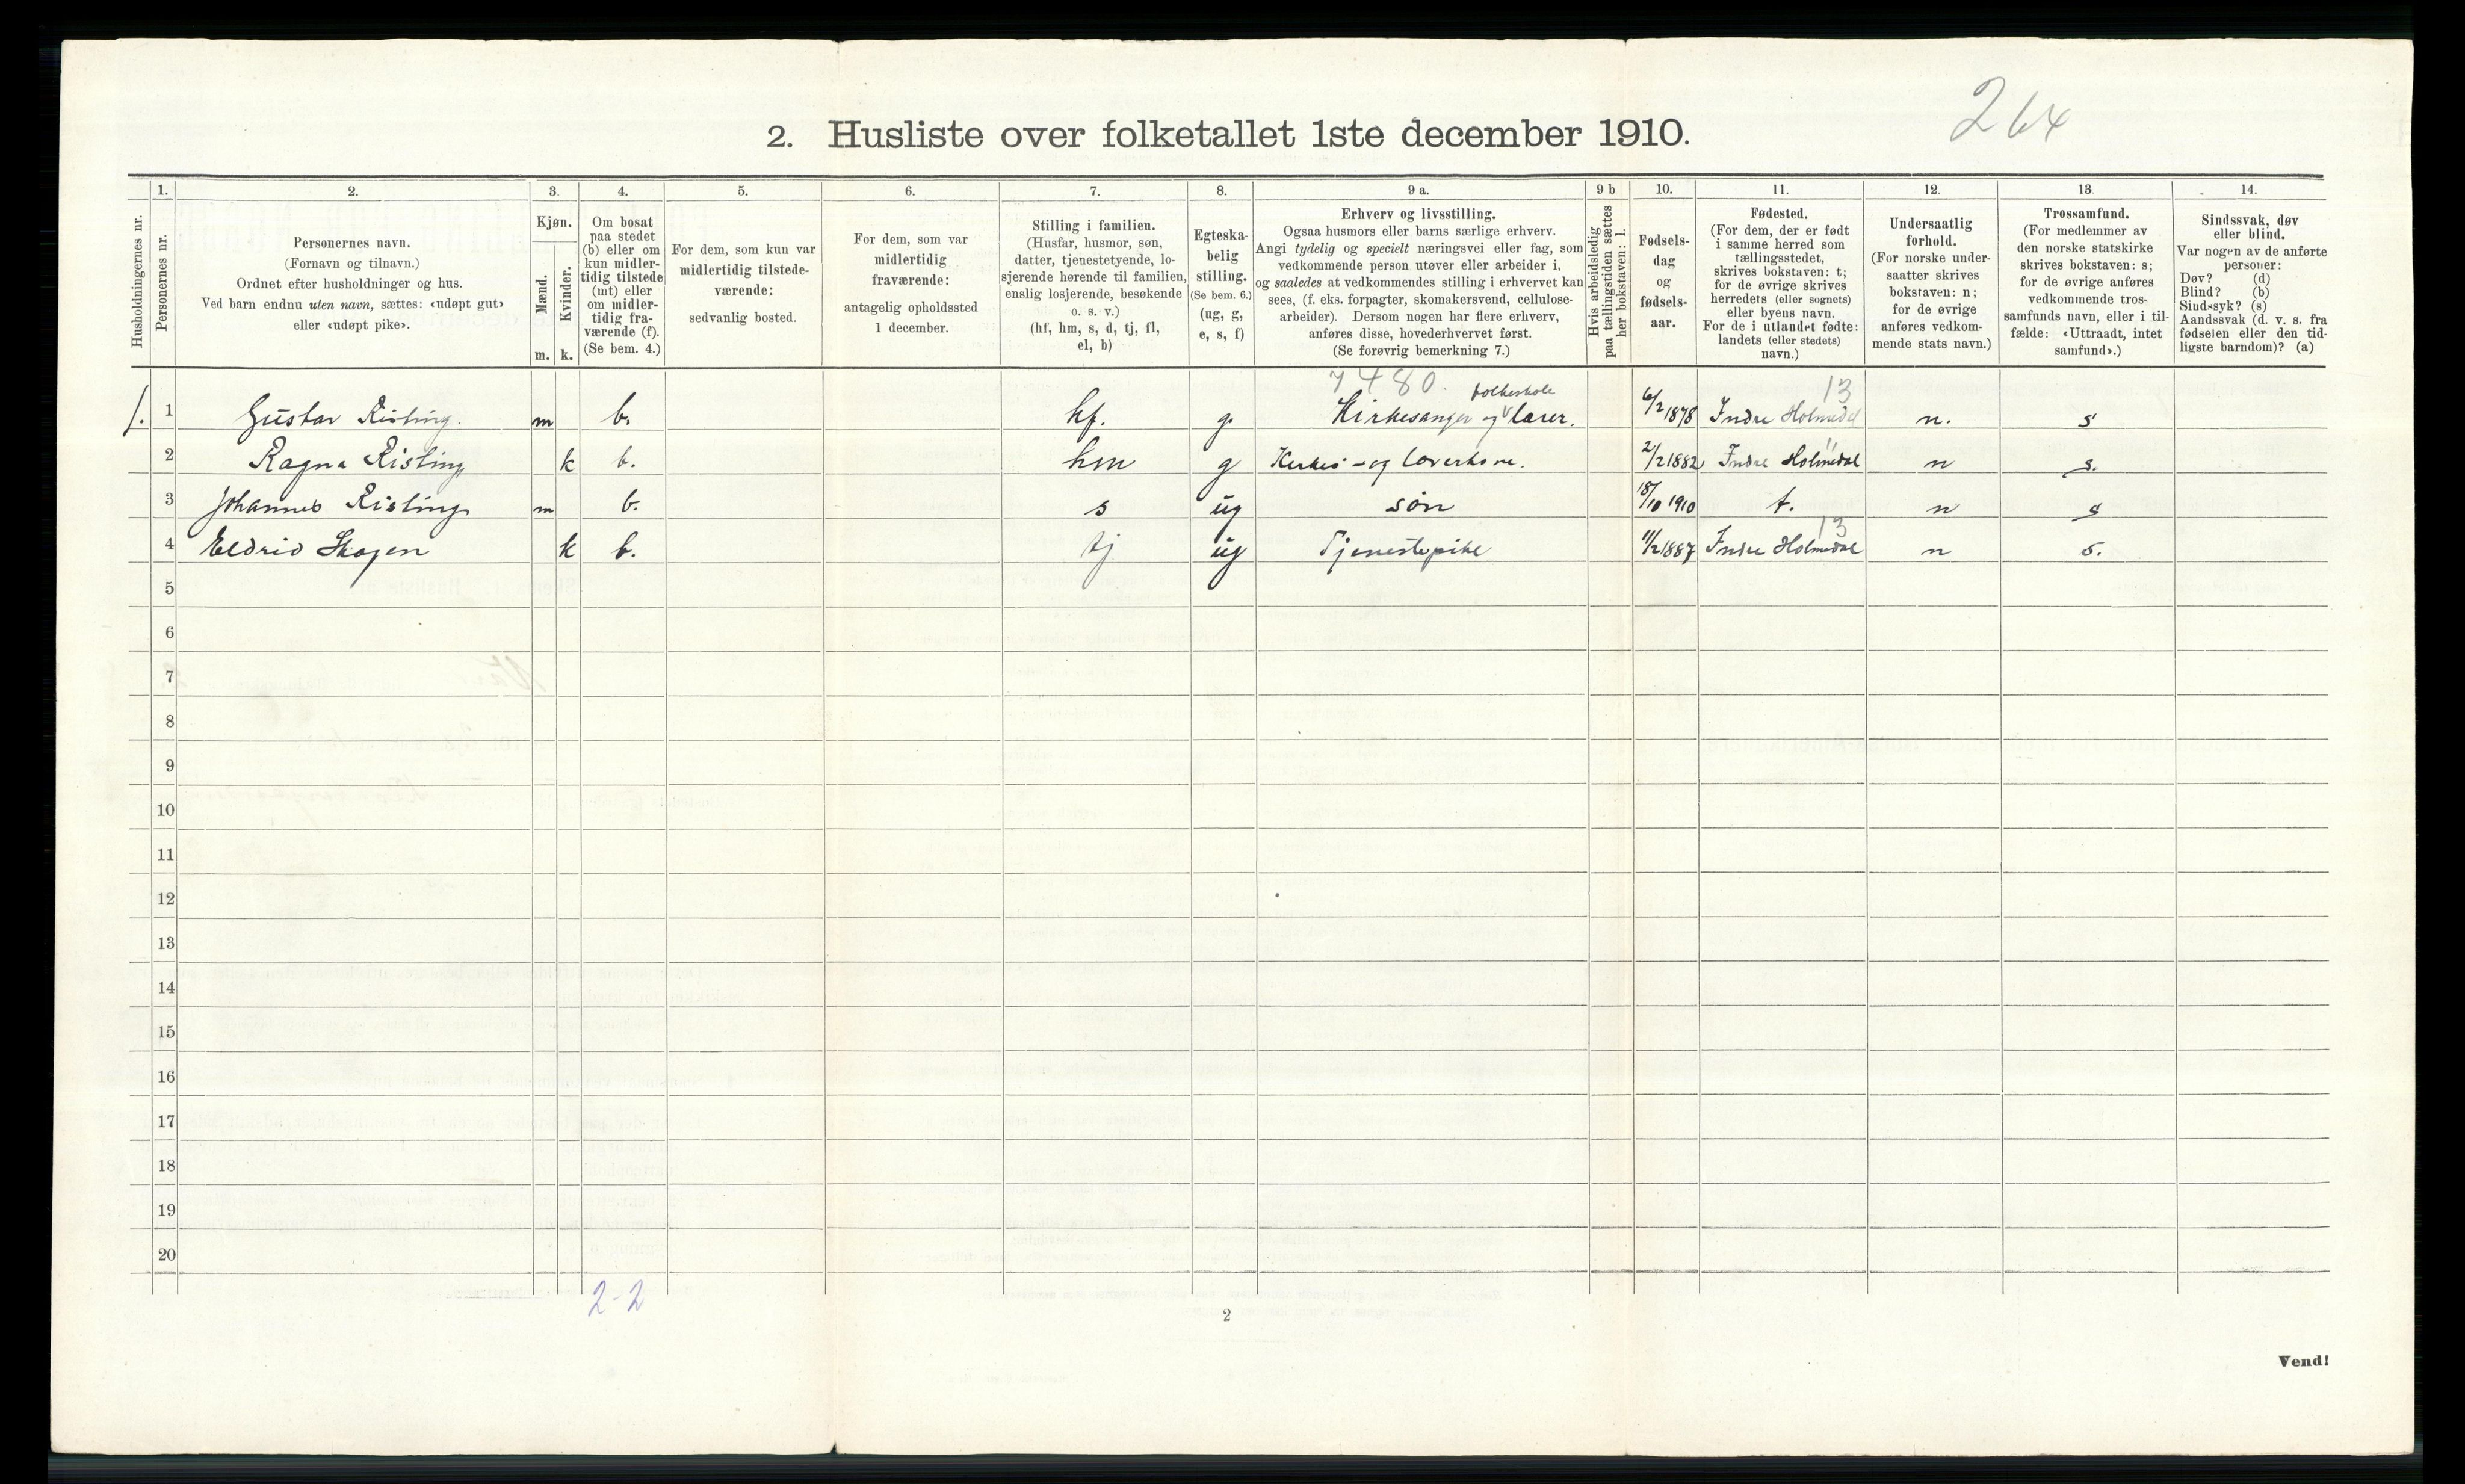 264
2. Husliste over folketallet 1ste december 1910.
Husholdningernes nr.
1.
Personernes nr.
2.
Personernes navn.
(Fornavn og tilnavn.)
Ordnet efter husholdninger og hus.
Ved barn endnu uten navn, sættes: «udøpt gut»
eller «udøpt pike».
3.
Kjøn.
Mænd.
Kvinder.
m. k.
4.
Om bosat
paa stedet
(b) eller om
kun midler-
tidig tilstede
(mt) eller
om midler-
tidig fra-
værende (f).
(Se bem. 4.)
5.
For dem, som kun var
midlertidig tilstede-
værende:
sedvanlig bosted.
6.
For dem, som var
midlertidig
fraværende:
antagelig opholdssted
1 december.
7.
Stilling i familien.
(Husfar, husmor, søn,
datter, tjenestetyende, lo-
sjerende hørende til familien,
enslig losjerende, besøkende
o. s. v.)
(hf, hm, s, d, tj, fl,
el, b)
8.
Egteska-
belig
stilling.
(Se bem. 6.)
(ug, g,
e, s, f)
9 a.
Erhverv og livsstilling.
Ogsaa husmors eller barns særlige erhverv.
Angi tydelig og specielt næringsvei eller fag, som
vedkommende person utøver eller arbeider i,
og saaledes at vedkommendes stilling i erhvervet kan
sees, (f. eks. forpagter, skomakersvend, cellulose-
arbeider). Dersom nogen har flere erhverv,
anføres disse, hovederhvervet først.
(Se forøvrig bemerkning 7.)
9 b
Hvis arbeidsledig
paa tællingstiden sættes
her bokstaven: l.
10.
Fødsels-
dag
og
fødsels-
aar.
11.
Fødested.
(For dem, der er født
i samme herred som
tællingsstedet,
skrives bokstaven: t;
for de øvrige skrives
herredets (eller sognets)
eller byens navn.
For de i utlandet fødte:
landets (eller stedets)
navn.)
12.
Undersaatlig
forhold.
(For norske under-
saatter skrives
bokstaven: n;
for de øvrige
anføres vedkom-
mende stats navn.)
13.
Trossamfund.
(For medlemmer av
den norske statskirke
skrives bokstaven: s;
for de øvrige anføres
vedkommende tros-
samfunds navn, eller i til-
fælde: «Uttraadt, intet
samfund».)
14.
Sindssvak, døv
eller blind.
Var nogen av de anførte
personer:
Døv? (d)
Blind? (b)
Sindssyk? (s)
Aandssvak (d. v. s. fra
fødselen eller den tid-
ligste barndom)? (a)
7480. folkeskole 13
1. 1 Gustav Risting. m b. hf. g. Kirkesanger og lærer. 6/2 1878 Indre Holmedal n. s
2 Ragna Risting k b. hm g Kirkes- og lærerkone. 2/2 1882 Indre Holmedal " n s.
3 Johannes Risting m b. s ug søn 18/10 1910 t. n s
13
4 Eldrid Skogen k b. tj ug Tjenestepike 11/2 1887 Indre Holmedal n s.
5
6
7
8
9
10
11
12
13
14
15
16
17
18
19
20
2-2
2
Vend!